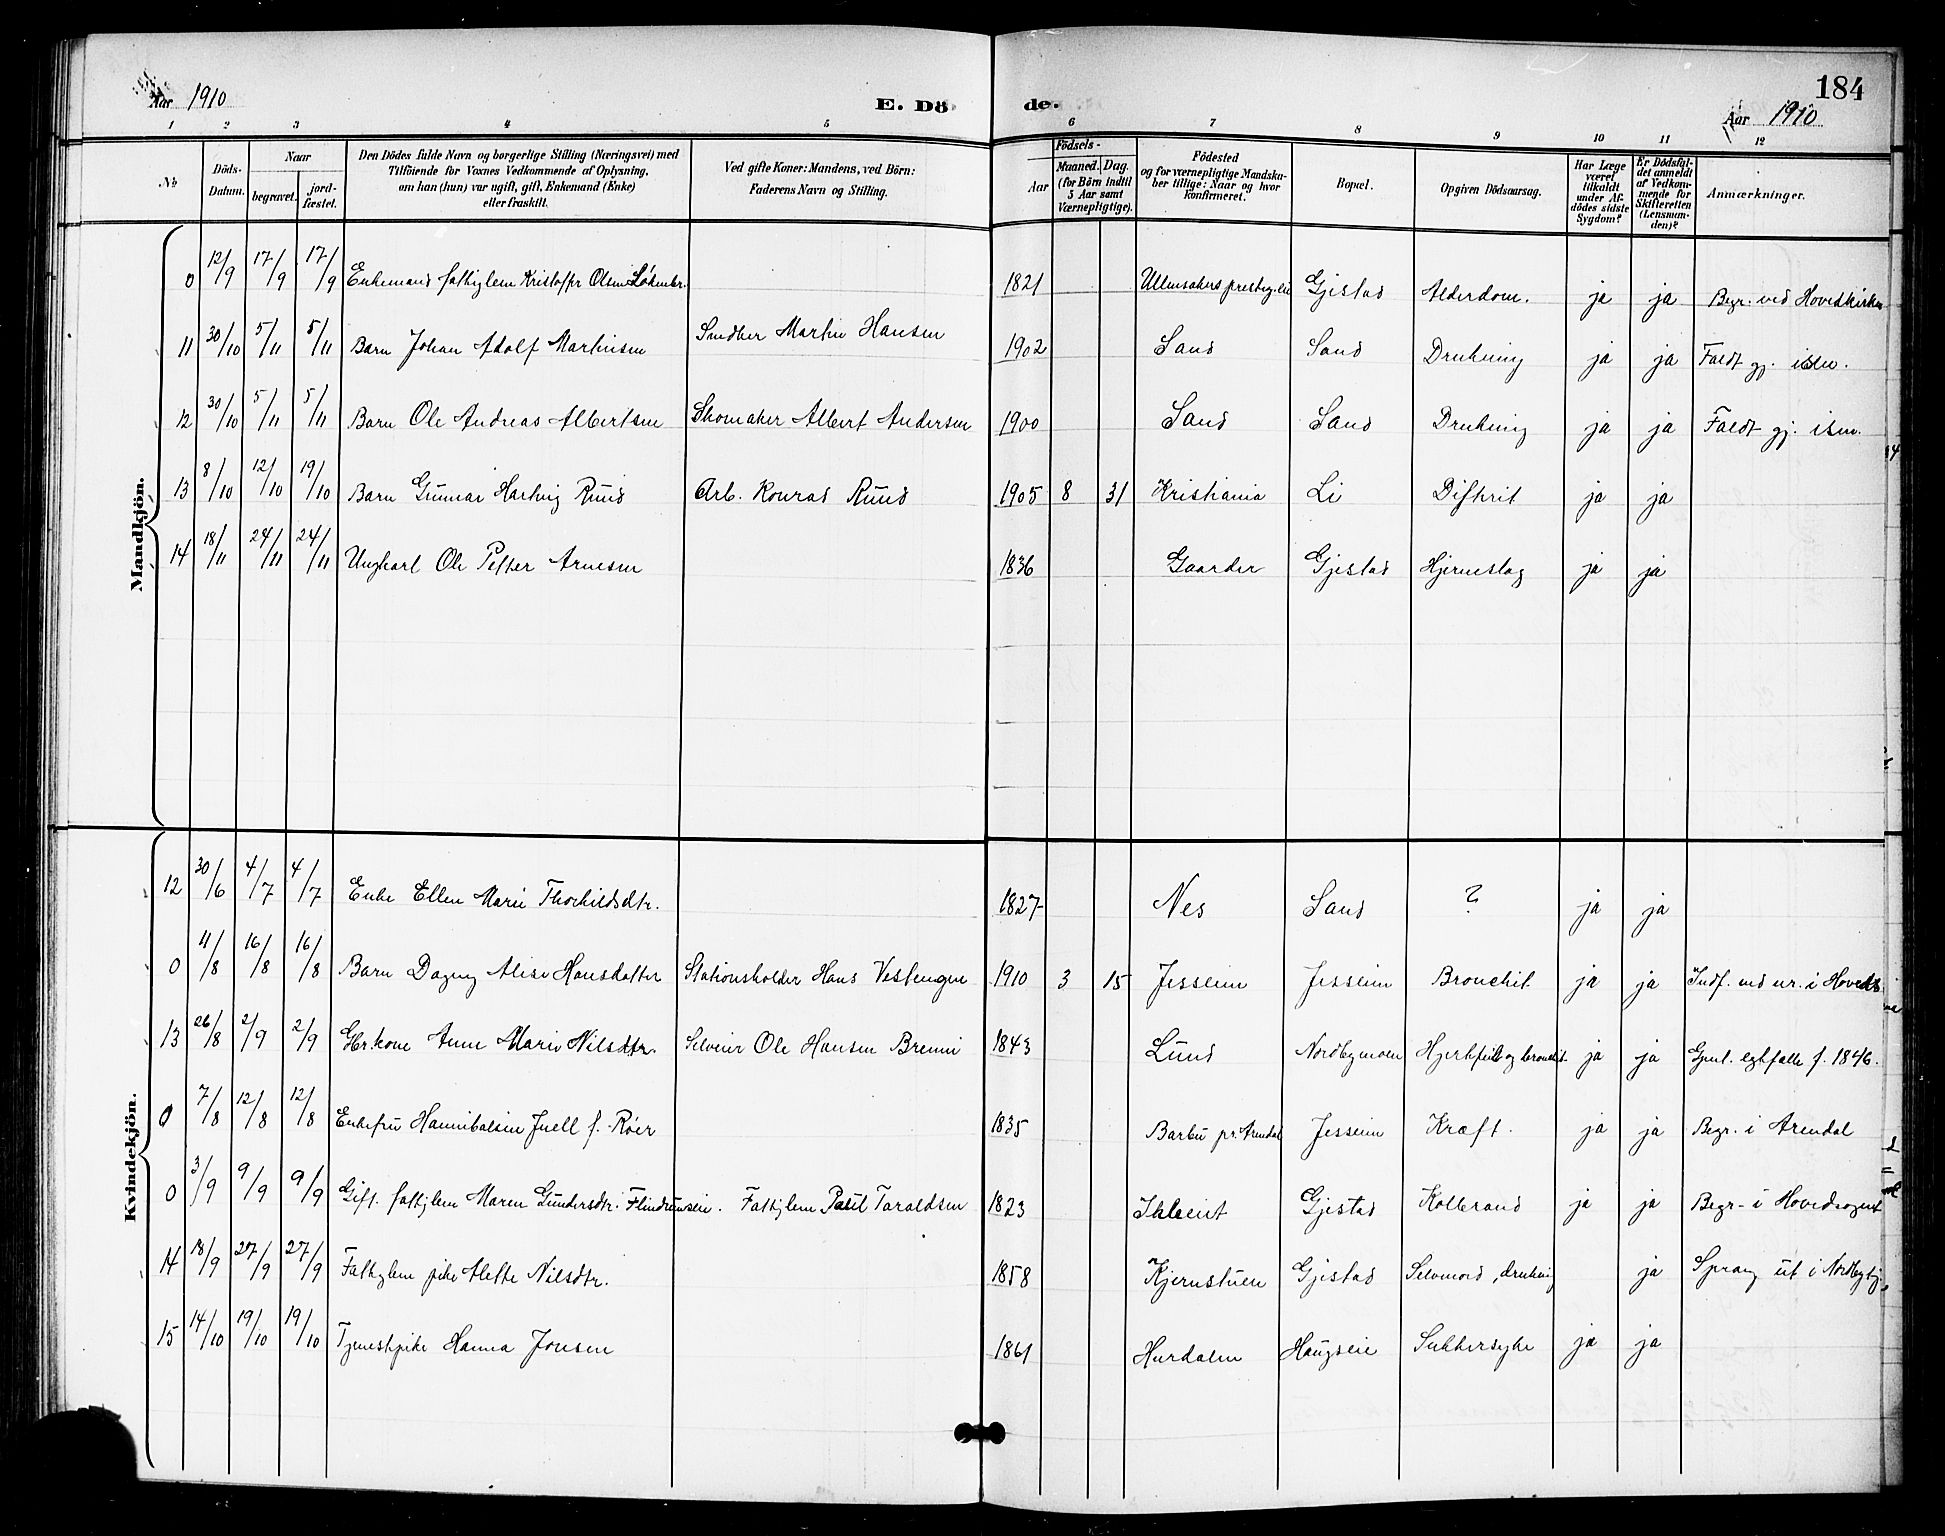 184
Aar 1910 E. Döde. Aar 1910
1 2 3 4 5 6 7 8 9 10 11 12
No Döds-Datum. Naar begravet. jordfæstet. Den Dödes fulde Navn og borgerlige Stilling (Næringsvei) med Tilföiende for Voxnes Vedkommende af Oplysning, om han (hun) var ugift, gift, Enkemand (Enke) eller fraskilt. Ved gifte Koner: Mandens, ved Börn: Faderens Navn og Stilling. Födsels- Aar Maaned. Dag. (for Börn indtil 5 Aar samt Værnepligtige). Födested og for værnepligtige Mandskaber tillige: Naar og hvor konfirmeret. Bopæl. Opgiven Dödsaarsag. Har Læge været tilkaldt under Afdödes sidste Sygdom? Er Dödsfaldet anmeldt af Vedkommende for Skifteretten (Lensmanden)? Anmærkninger.
Mandkjön.
0 12/9 17/9 17/9 Enkemand fattiglem Kristoffer Olsen 1821 Ullensakers Gjestad Alderdom. ja ja Begr. ved Hovedkirken
11 30/10 5/11 5/11 Barn Johan Adolf Martinsen Martin Hansen 1902 Sand Sand Drukning ja ja Faldt gj. isen.
12 30/10 5/11 5/11 Barn Ole Andreas Albertsen Skomaker Albert Andersen 1900 Sand Sand Drukning ja ja Faldt gj. isen.
13 8/10 12/10 19/10 Barn Gunnar Hartvig Ruud Arb. Konrad Ruud 1905 8 31 Kristiania Li Difterit ja ja
14 18/11 24/11 24/11 Ungkarl Ole Petter Arnesen 1836 Gaarder Gjestad Hjerneslag ja ja
Kvindekjön.
12 30/6 4/7 4/7 Enke Ellen Marie Thorkildsdtr. 1827 Nes Sand ? ja ja
0 11/8 16/8 16/8 Barn Dagny Alise Hansdatter Stationsholder Hans Vestengen 1910 3 15 Jesseim Jesseim Bronchit ja ja Indf. med nr. i Hoveds
13 26/8 2/9 2/9 Gbr.kone Anne Marie Nilsdtr. Selveier Ole Hansen Brenni 1843 Lund Nordbymoen Hjertefeil og bronchit ja ja f. 1846.
0 7/8 12/8 12/8 Enkefru Hannibalsine Juell f. Röer 1835 Barbu pr. Arendal Jesseim Kræft. ja ja Begr. i Arendal
0 3/9 9/9 9/9 Gift. fattiglem Maren Gundersdtr. Flindrumseie. Fattiglem Paul Taraldsen 1823 Gjestad Kolbrand ja ja Begr. i Hovedsognet
14 18/9 27/9 27/9 Fattiglem pike Alette Nilsdtr. 1858 Kjernstuen Gjestad Selvmord, drukning ja Sprang ut i Nordbytj.
15 14/10 19/10 19/10 Tjenestpike Hanna Jonsen 1861 Hurdalen Haugseie Sukkersyke ja ja